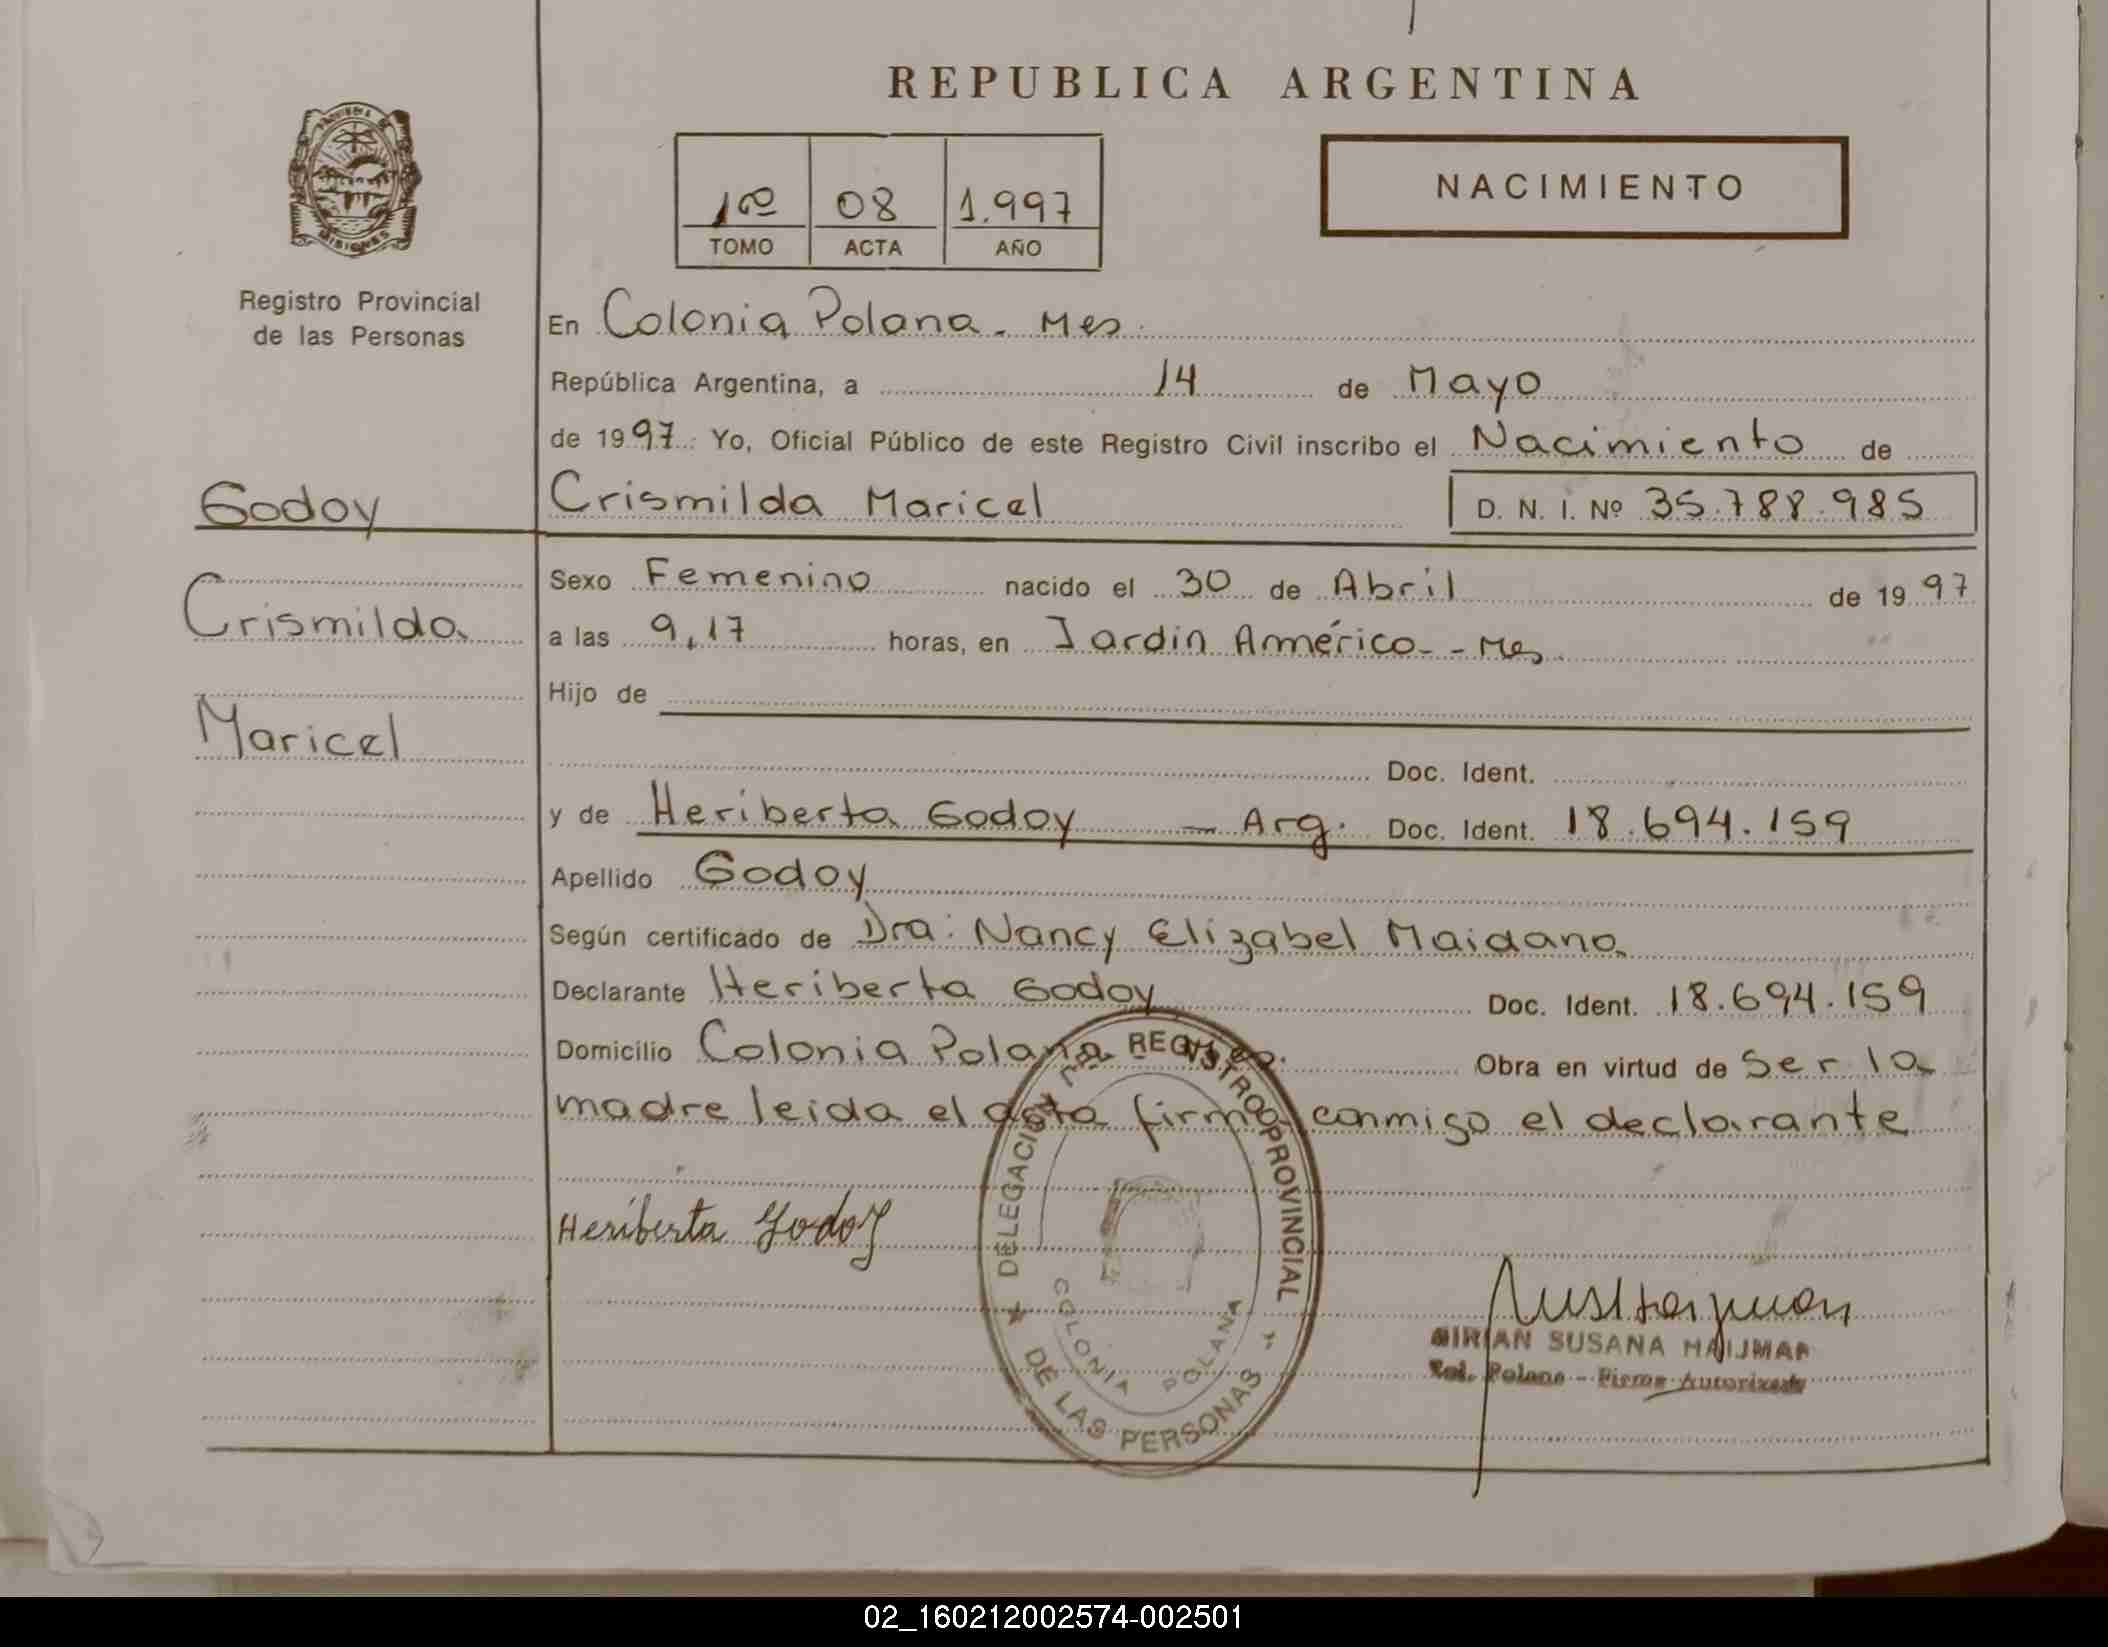 REPUBLICA ARGENTINA
1ro 08 1.997
TOMO ACTA AÑO
NACIMIENTO
PROVINCIA DE
MISIONES
Registro Provincial
de las Personas
Godoy
Crismilda
Maricel
En Colonia Polana - Mes.
República Argentina, a 14 de Mayo
de 1997. Yo, Oficial Público de este Registro Civil inscribo el Nacimiento de
Crismilda Maricel D. N. I. Nº 35.788.985
Sexo Femenino nacido el 30 de Abril de 1997
a las 9,17 horas, en Jardin América - Mes.
Hijo de
Doc. Ident.
y de Heriberta Godoy — Arg. Doc. Ident. 18.694.159
Apellido Godoy
Según certificado de Dra: Nancy Elizabel Maidana
Declarante Heriberta Godoy Doc. Ident. 18.694.159
Domicilio Colonia Polana - Mes. Obra en virtud de Ser la
madre leida el acta firma conmigo el declarante
Heriberta Godoy
DELEGACION REGISTRO PROVINCIAL
DE LAS PERSONAS
COLONIA POLANA
MIRIAN SUSANA HAIJMAN
Col. Polana - Firma Autorizada
02_160212002574-002501